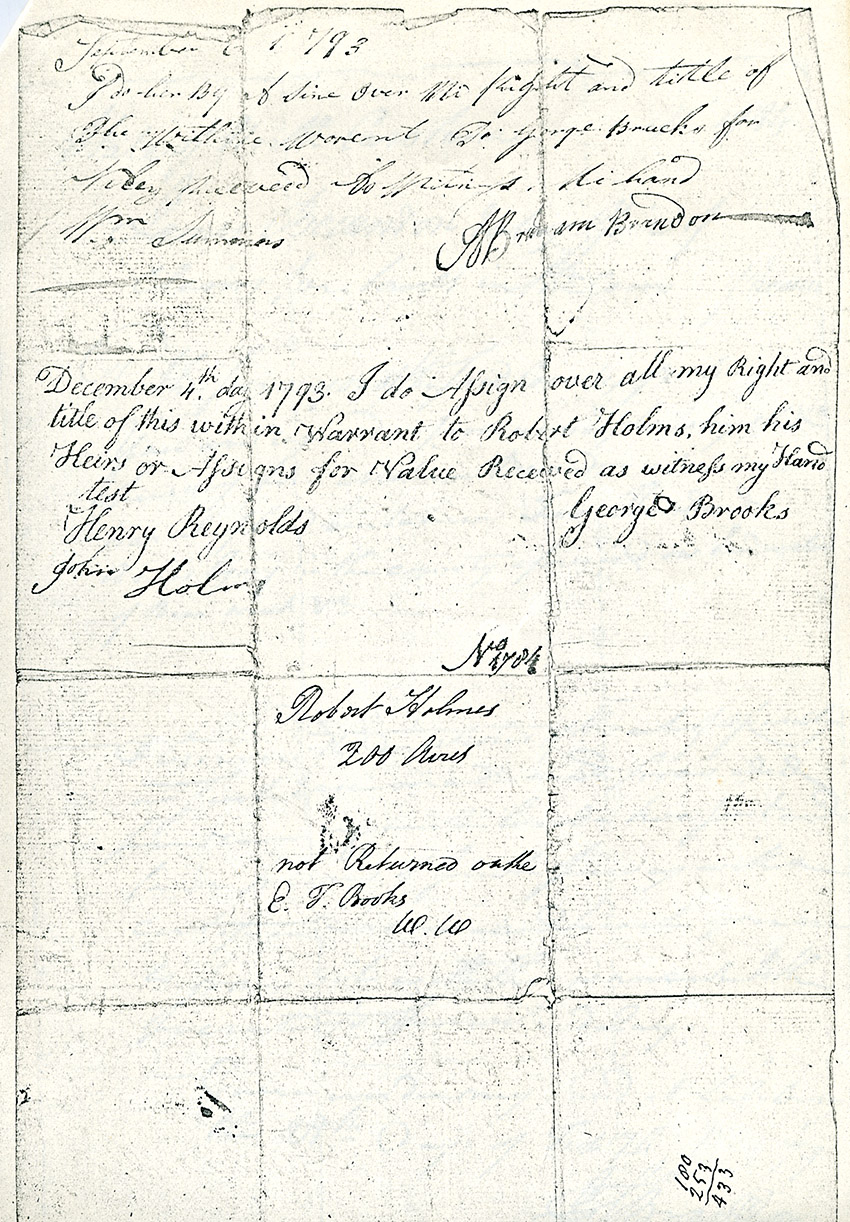 1793
Do her By A Sine Over Mi Right and tittle of
The Within Worent To George Brucks for
Receved As Witness Mi hand
Wm Summers
Abraham Brandon
December 4th day 1793. I do Assign over all my Right and
title of this within Warrant to Robert Holms, him his
Heirs or Assigns for Value Received as witness my Hand
test
George Brooks
Henry Reynolds
John Holms
No 1784
Robert Holmes
200 Acres
not Returned on the
E. T. Books
W. W
100
253
433